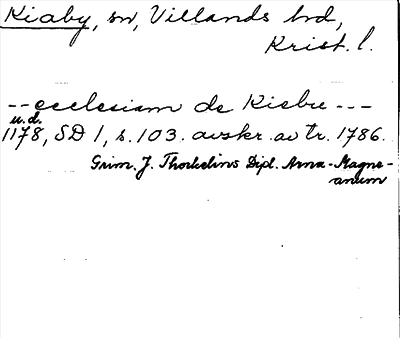 Kiaby, sn, Villands hd,
Krist. l.
-- ecclesiam de Kiebu ---
u.d.
1178, SD 1, s. 103. avskr. av tr. 1786.
Grim. J. Thorkelins Dipl. Arna-Magne-
anum